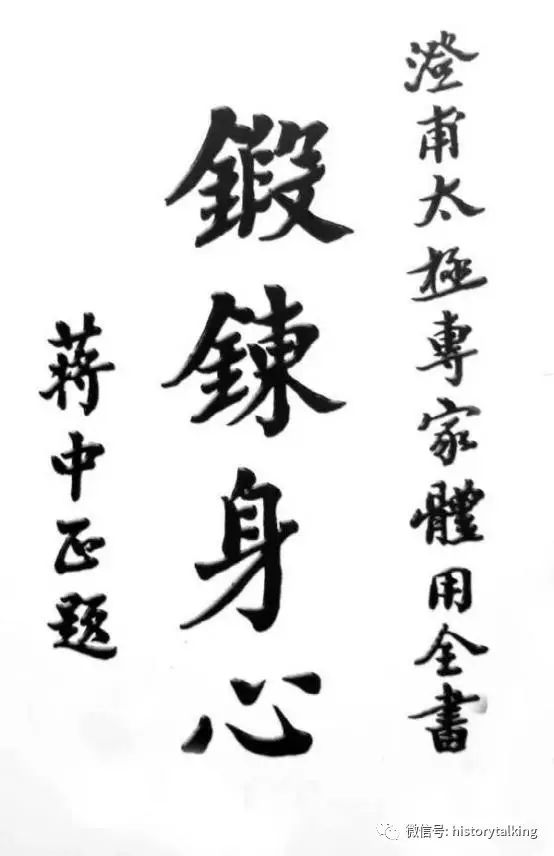 澄甫太極專家體用全書
鍛鍊身心
蔣中正題
微信号: historytalking